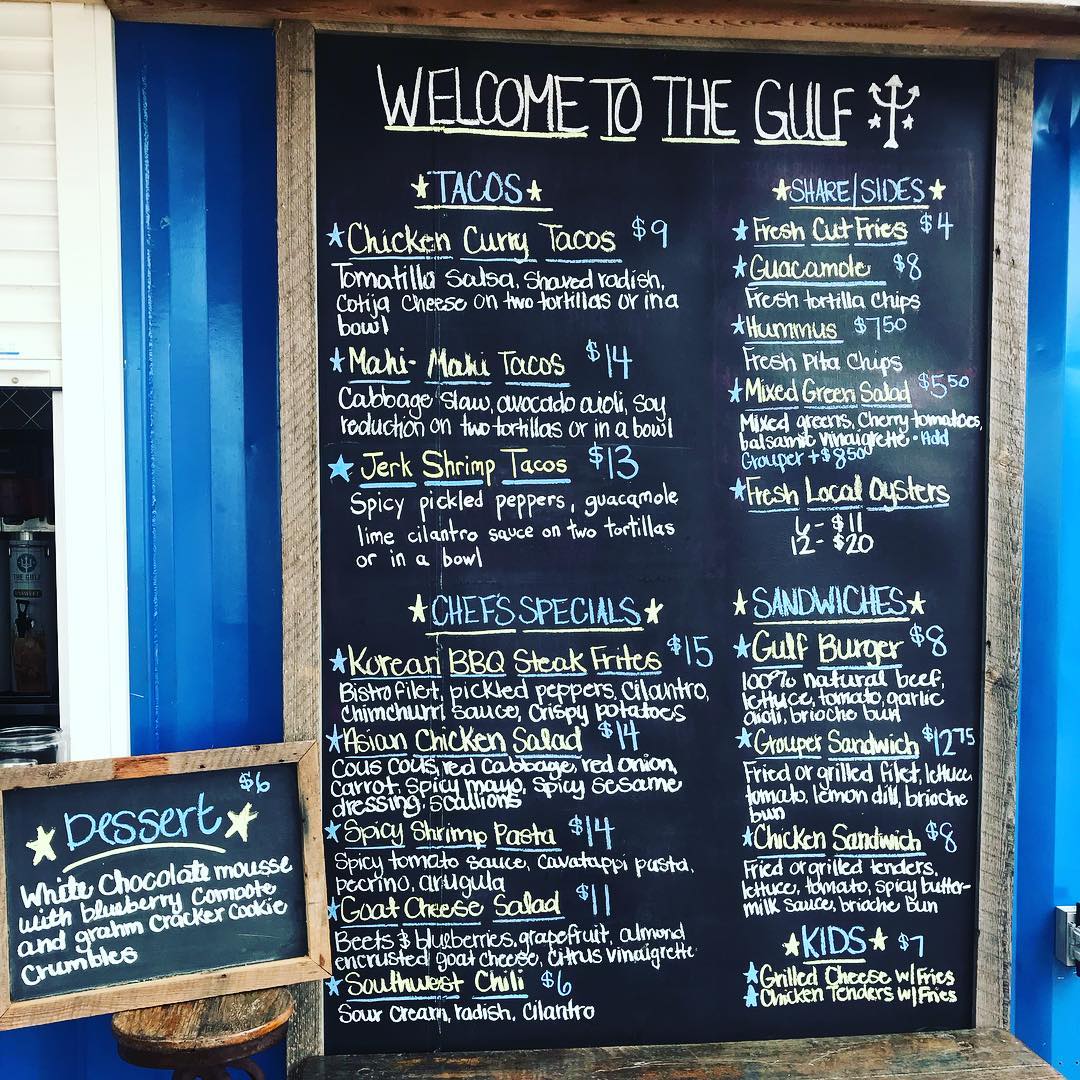 WELCOME TO THE GULF
TACOS
Chicken Curry Tacos $9
Tomatillo Salsa, Shaved radish,
Cotija Cheese on two tortillas or in a
bowl
Mahi-Mahi Tacos $14
Cabbage slaw, avocado aioli, soy
reduction on two tortillas or in a bowl
Jerk Shrimp Tacos $13
Spicy pickled peppers, guacamole
lime cilantro sauce on two tortillas
or in a bowl
CHEF'S SPECIALS
Korean BBQ Steak Frites $15
Bistro filet, pickled peppers, Cilantro,
Chimchurri Sauce, Crispy potatoes
Asian Chicken Salad $14
Cous Cous, red Cabbage, red onion,
Carrot, Spicy mayo, Spicy sesame
dressing, Scallions
Spicy Shrimp Pasta $14
Spicy tomato sauce, Cavatappi pasta,
pecrino, arugula
Goat Cheese Salad $11
Beets & blueberries, grapefruit, almond
encrusted goat cheese, Citrus vinaigrette
Southwest Chili $6
Sour Cream, radish, Cilantro
SHARE/SIDES
Fresh Cut Fries $4
Guacamole $8
Fresh tortilla Chips
Hummus $7.50
Fresh Pita Chips
Mixed Green Salad $5.50
Mixed greens, Cherry tomatoes,
balsamic vinaigrette • Add
Grouper + $8.50
Fresh Local Oysters
6 - $11
12 - $20
SANDWICHES
Gulf Burger $8
100% natural beef,
lettuce, tomato, garlic
aioli, brioche bun
Grouper Sandwich $12.75
Fried or grilled filet, lettuce
tomato, lemon dill, brioche
bun
Chicken Sandwich $8
Fried or grilled tenders,
lettuce, tomato, spicy butter-
milk sauce, brioche bun
KIDS $7
Grilled Cheese w/Fries
Chicken Tenders w/Fries
$6
Dessert
White Chocolate mousse
with blueberry Compote
and grahm Cracker Cookie
Crumbles
THE GULF